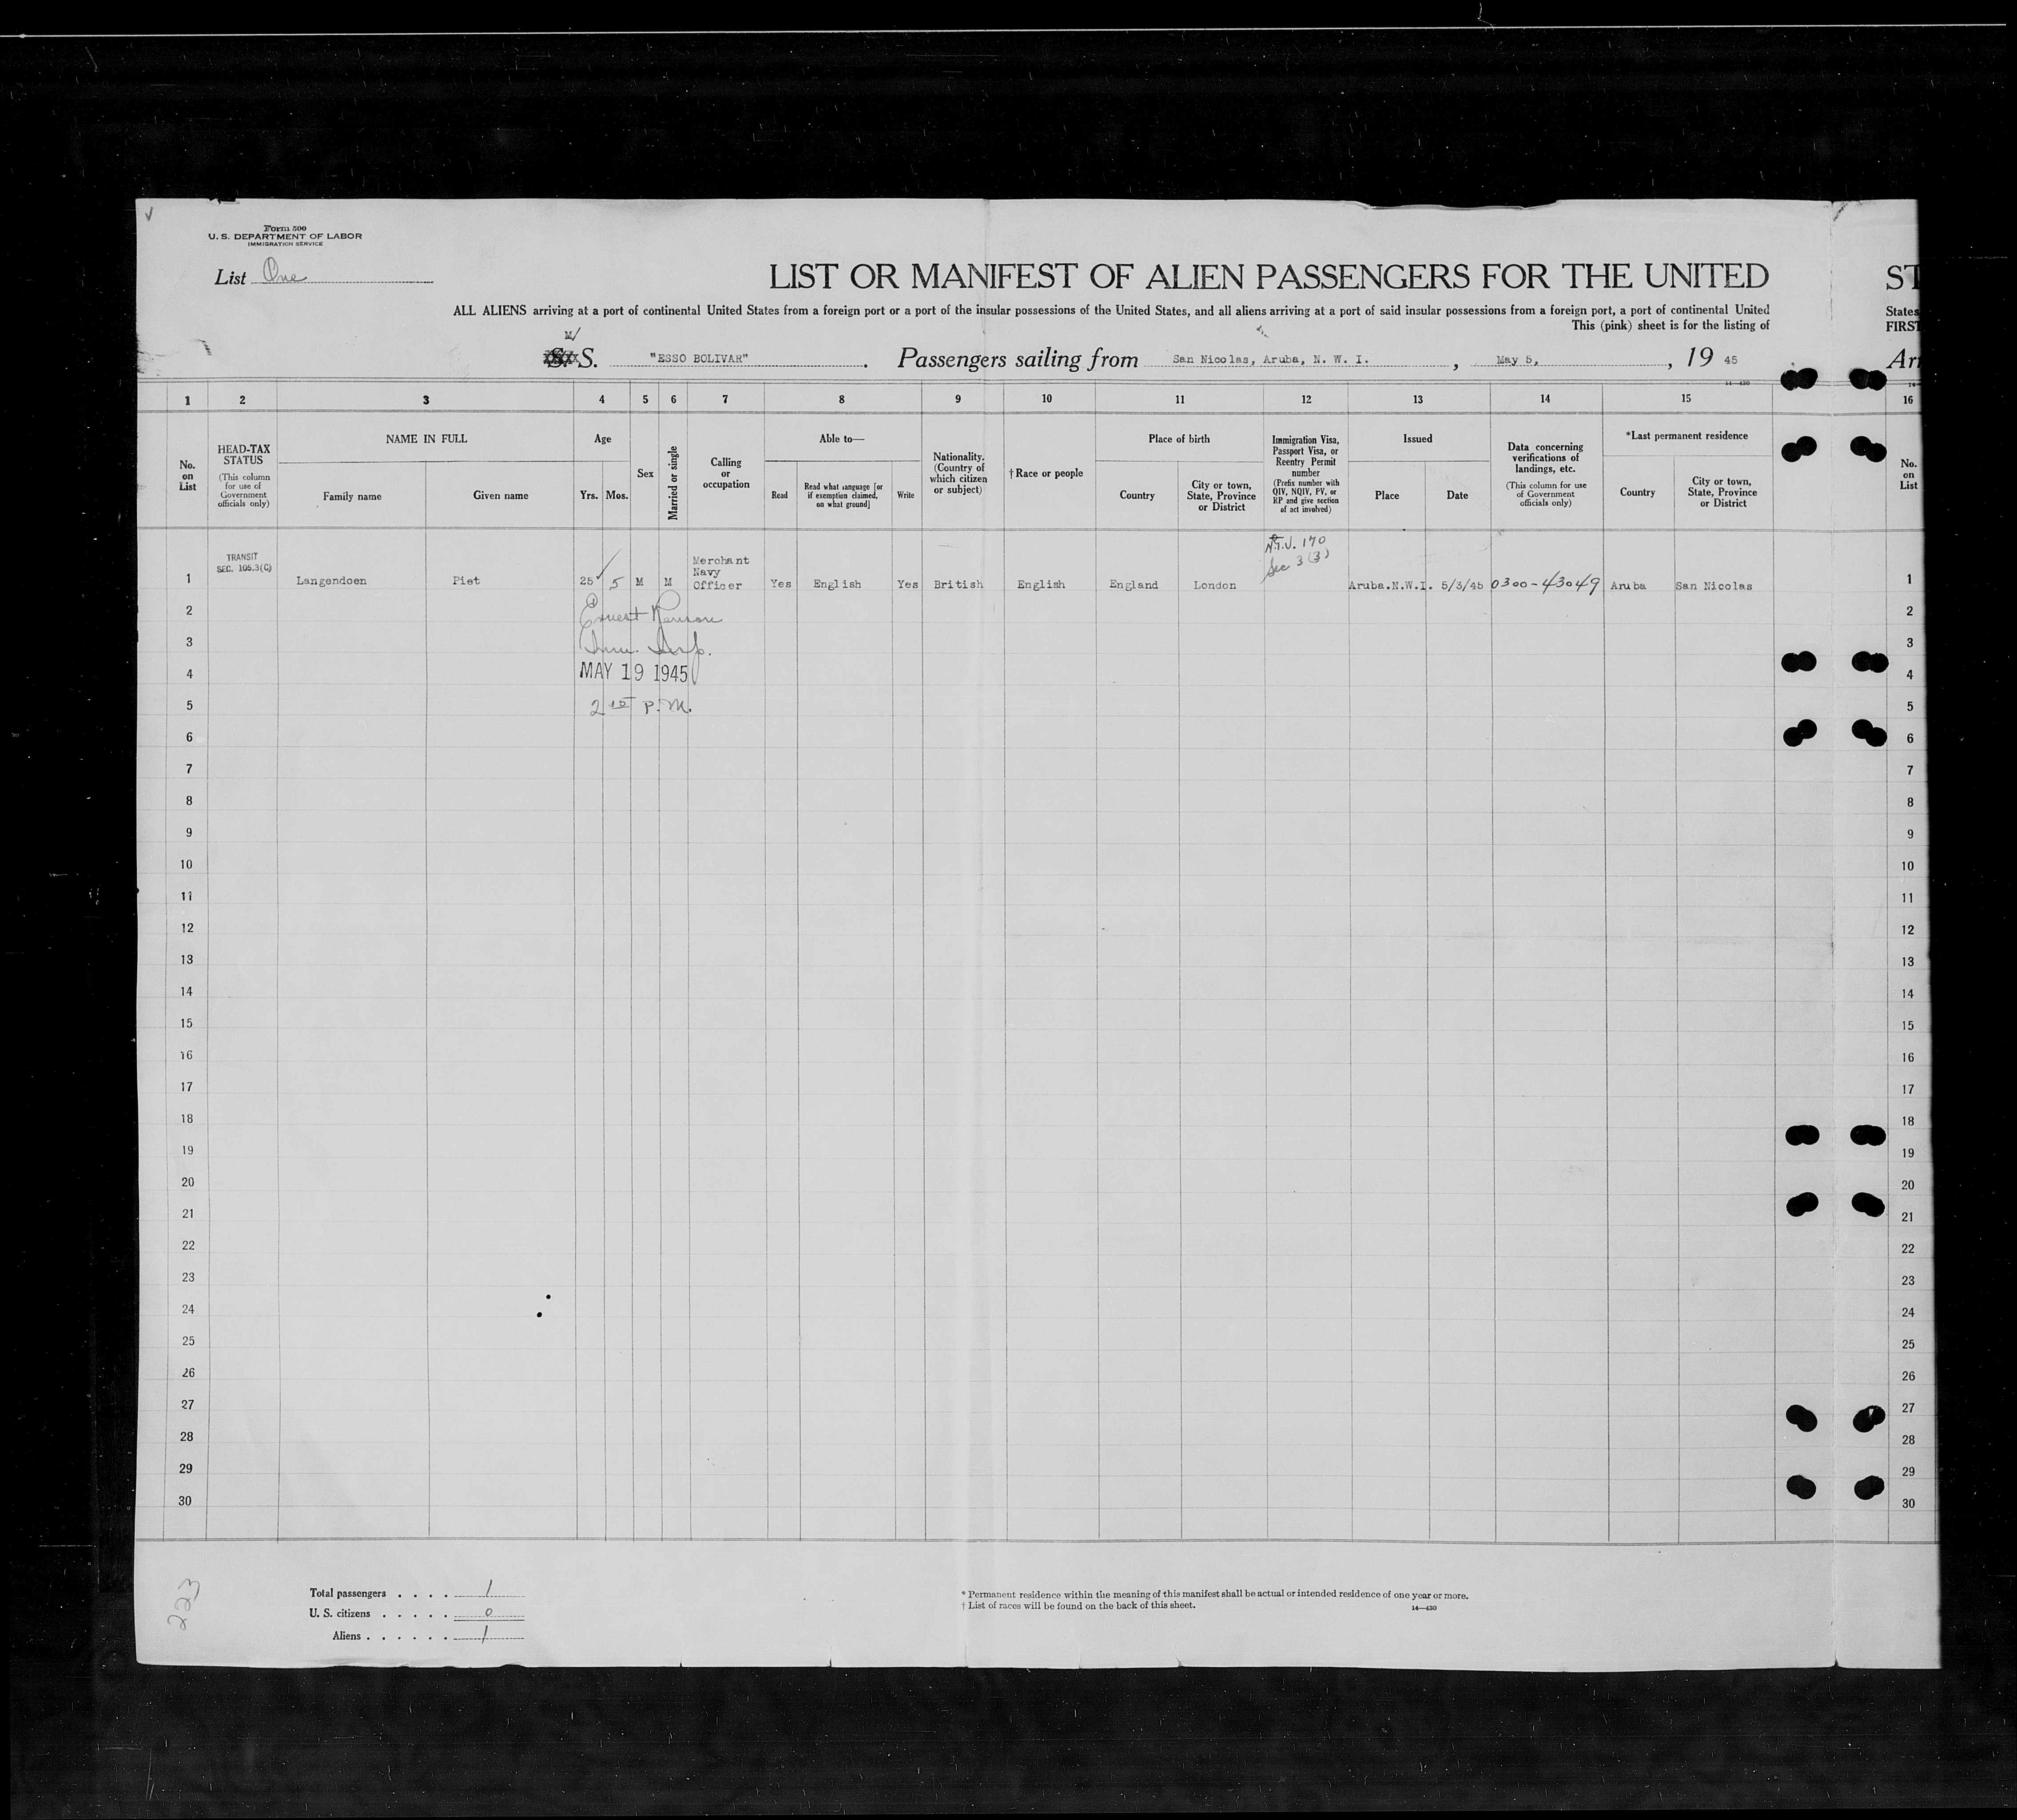 Form 500
U. S. DEPARTMENT OF LABOR
IMMIGRATION SERVICE
List One
LIST OR MANIFEST OF ALIEN PASSENGERS FOR THE UNITED
ST
ALL ALIENS arriving at a port of continental United States from a foreign port or a port of the insular possessions of the United States, and all aliens arriving at a port of said insular possessions from a foreign port, a port of continental United
States
This (pink) sheet is for the listing of
FIRST
M/
S. "ESSO BOLIVAR". Passengers sailing from San Nicolas, Aruba, N. W. I., May 5, , 19 45
Arr
14—430
1 2 3 4 5 6 7 8 9 10 11 12 13 14 15 16
No. on List
HEAD-TAX STATUS
(This column for use of Government officials only)
NAME IN FULL
Family name Given name
Age
Yrs. Mos.
Sex
Married or single
Calling or occupation
Able to—
Read
Read what language [or if exemption claimed, on what ground]
Write
Nationality. (Country of which citizen or subject)
†Race or people
Place of birth
Country
City or town, State, Province or District
Immigration Visa, Passport Visa, or Reentry Permit number
(Prefix number with QIV, NQIV, PV, or RP and give section of act involved)
Issued
Place Date
Data concerning verifications of landings, etc.
(This column for use of Government officials only)
*Last permanent residence
Country
City or town, State, Province or District
No. on List
TRANSIT
SEC. 105.3(C)
170
Sec 3(3)
1 Langendoen Piet 25 5 M M Merchant Navy Officer Yes English Yes British English England London Aruba.N.W.I. 5/3/45 0300-43049 Aruba San Nicolas 1
2 Ernest 2
3 Imm. Insp. 3
4 MAY 19 1945 4
5 2 10 P.M. 5
6 6
7 7
8 8
9 9
10 10
11 11
12 12
13 13
14 14
15 15
16 16
17 17
18 18
19 19
20 20
21 21
22 22
23 23
24 24
25 25
26 26
27 27
28 28
29 29
30 30
223
Total passengers . . . . 1
U. S. citizens . . . . . 0
Aliens . . . . . . 1
* Permanent residence within the meaning of this manifest shall be actual or intended residence of one year or more.
† List of races will be found on the back of this sheet.
14—430